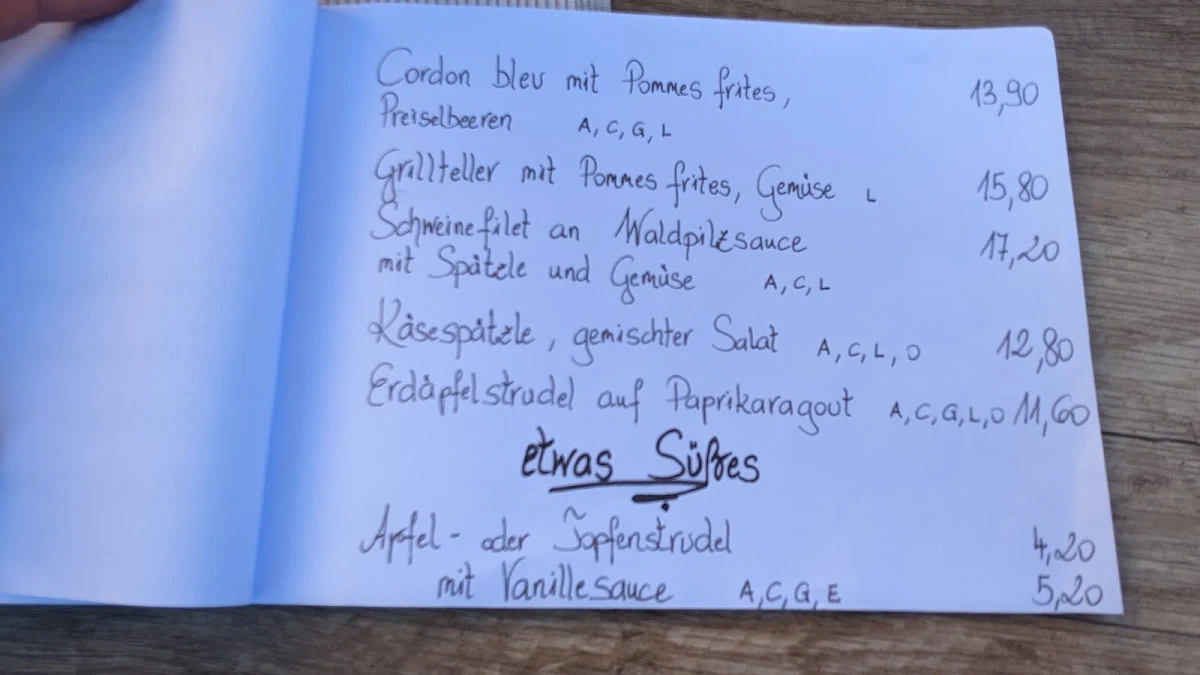 Cordon bleu mit Pommes frites, 13,90
Preiselbeeren A, C, G, L
Grillteller mit Pommes frites, Gemüse L 15,80
Schweinefilet an Waldpilzsauce 17,20
mit Spätzle und Gemüse A, C, L
Käsespätzle, gemischter Salat A, C, L, O 12,80
Erdäpfelstrudel auf Paprikaragout A, C, G, L, O 11,60
etwas Süßes
Apfel- oder Topfenstrudel 4,20
mit Vanillesauce A, C, G, E 5,20